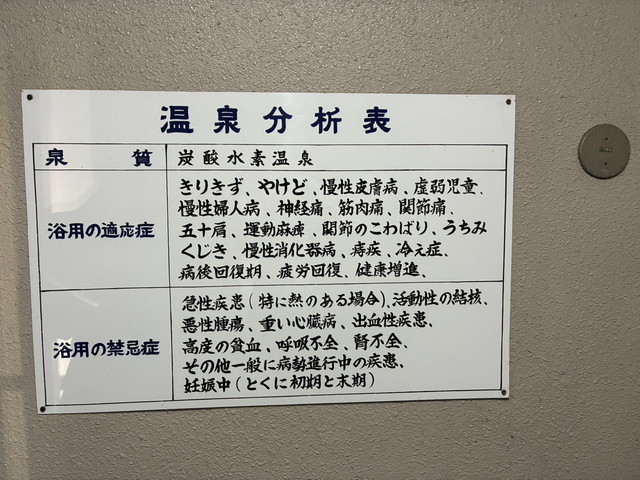 温泉分析表
泉質 炭酸水素温泉
浴用の適応症
きりきず、やけど、慢性皮膚病、虚弱児童、
慢性婦人病、神経痛、筋肉痛、関節痛、
五十肩、運動麻痺、関節のこわばり、うちみ
くじき、慢性消化器病、痔疾、冷え症、
病後回復期、疲労回復、健康増進、
浴用の禁忌症
急性疾患(特に熱のある場合)、活動性の結核、
悪性腫瘍、重い心臓病、出血性疾患、
高度の貧血、呼吸不全、腎不全、
その他一般に病勢進行中の疾患、
妊娠中(とくに初期と末期)